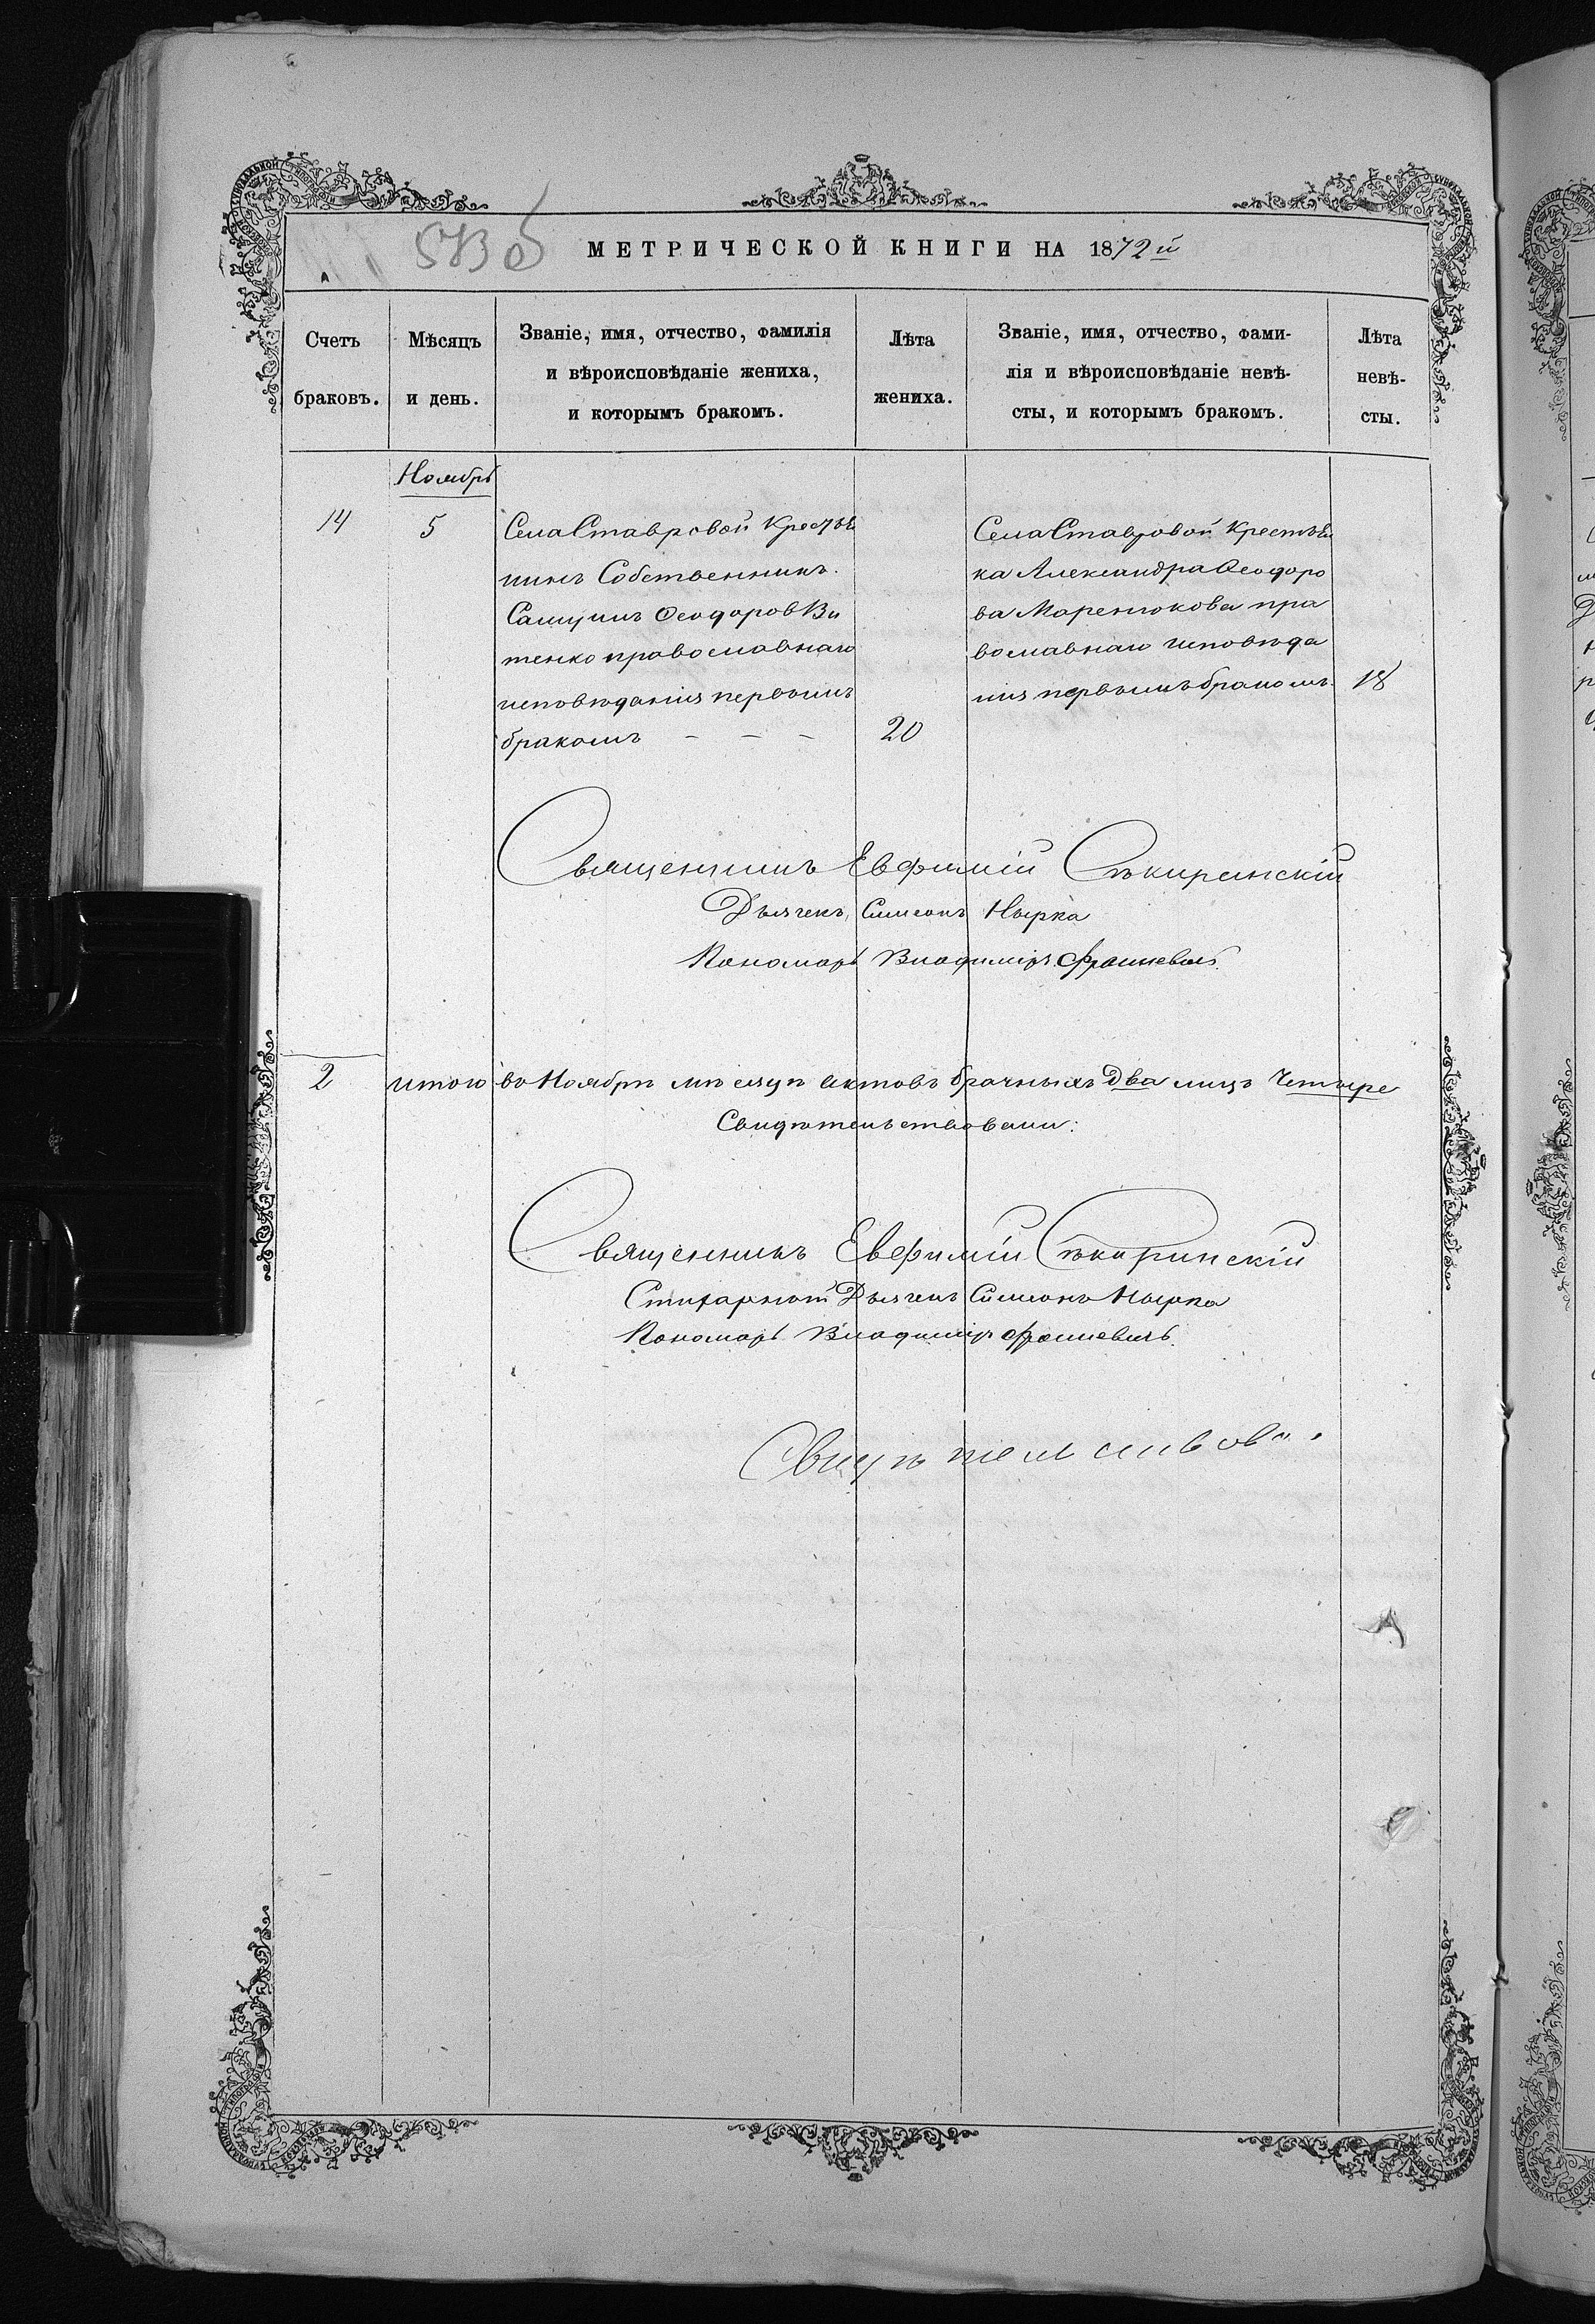 МЕТРИЧЕСКОЙ КНИГИ НА 1872й
Счетъ браковъ.
Мѣсяцъ и день.
Званіе, имя, отчество, фамилія
и вѣроисповѣданіе жениха,
и которымъ бракомъ.
Лѣта жениха.
Званіе, имя, отчество, фами-
лія и вѣроисповѣданіе невѣ-
сты, и которымъ бракомъ.
Лѣта невѣ-
сты.
Ноябрь
14
5
Села Ставровой Крестья
нинъ Собственникъ.
Самуилъ Ѳеодоров Ви
тенко православнаго
исповѣданія первымъ
бракомъ - - -
20
Села Ставровой Крестья
ка Александра Ѳеодоро
ва Маренюкова пра
вославнаго исповѣда
нія первымъ бракомъ.
18
Священникъ Евфимій Сѣкиринскій
Дьячекъ Симеонъ Нырка
Пономарь Владиміръ
2 итого въ Ноябрѣ мѣсяцѣ актовъ брачныхъ Два лицъ Четыре
Свидѣтельствовали:
Священникъ Евфимій Сѣкиринскій
Стихарный Дьячекъ Симеонъ Нырка
Пономарь Владиміръ